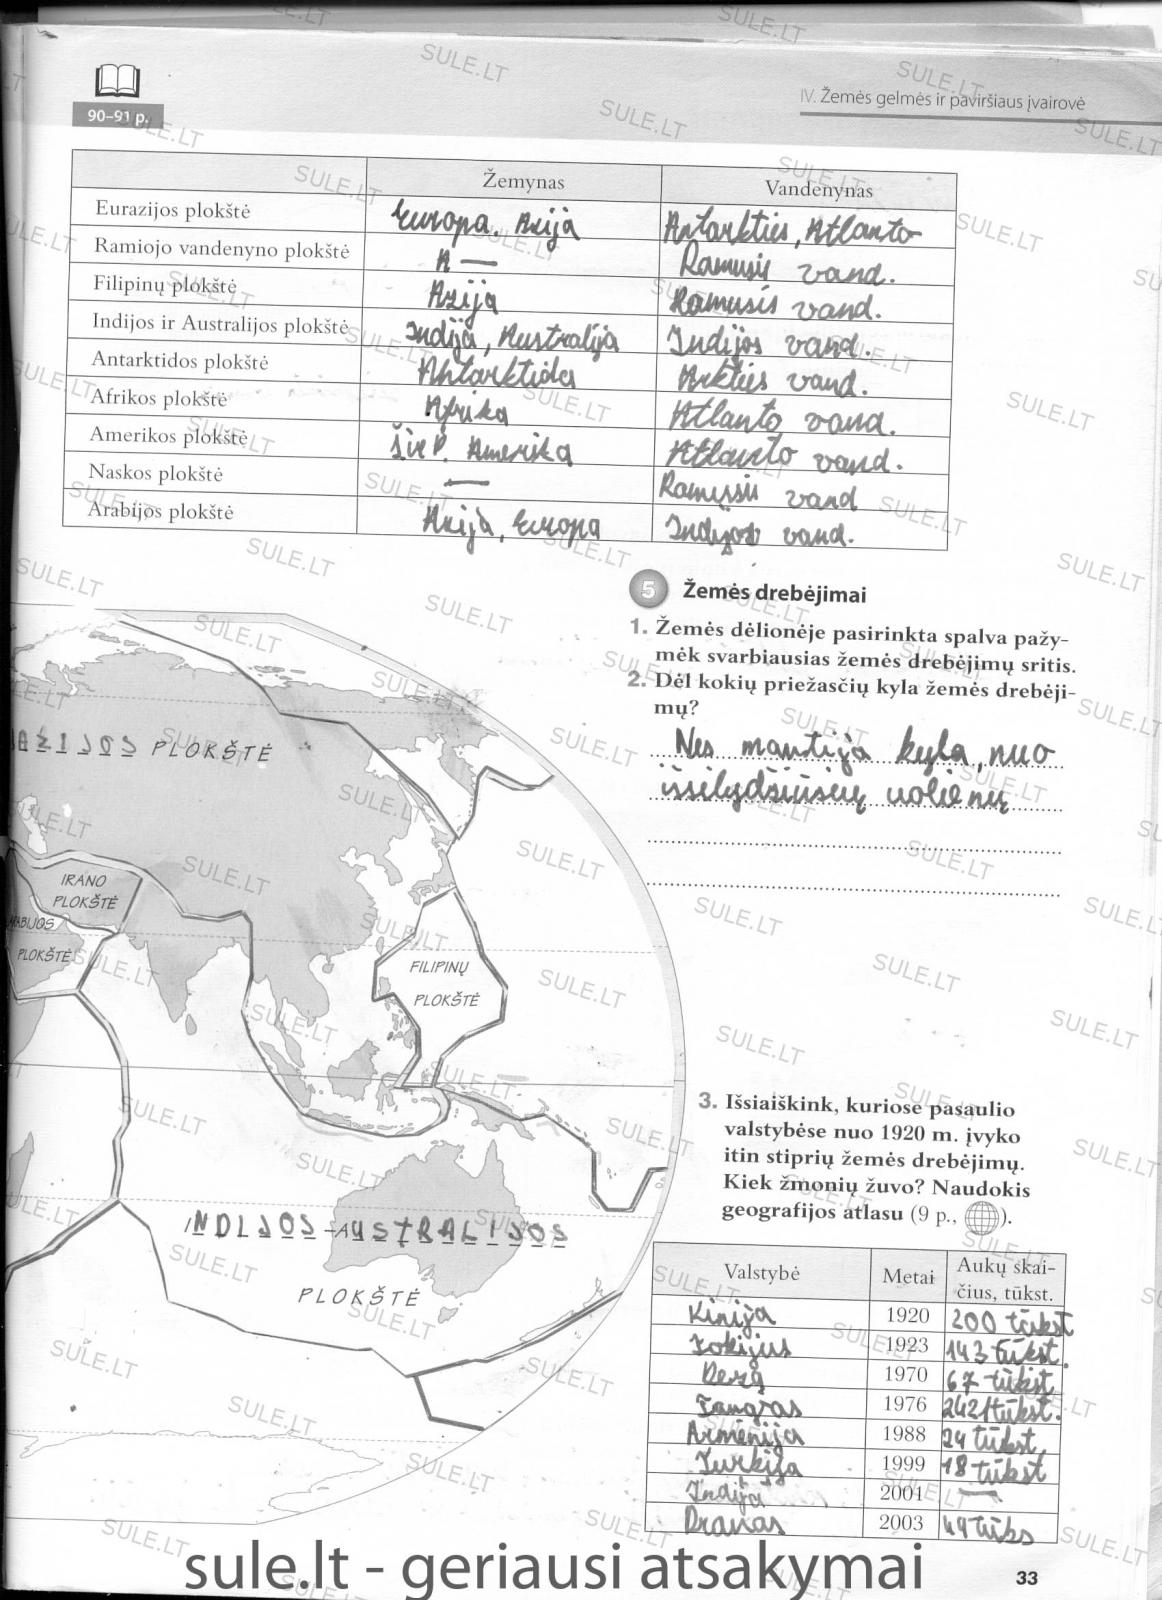 IV. Žemės gelmės ir paviršiaus įvairovė
90–91 p.
Žemynas Vandenynas
Eurazijos plokštė Europa. Azija Antarkties, Atlanto
Ramiojo vandenyno plokštė A — Ramusis vand.
Filipinų plokštė Azija Ramusis vand.
Indijos ir Australijos plokštė Indija, Australija Indijos vand.
Antarktidos plokštė Antarktida Arkties vand.
Afrikos plokštė Afrika Atlanto vand.
Amerikos plokštė Šir P. Amerika Atlanto vand.
Naskos plokštė — Ramusis vand
Arabijos plokštė Azija, Europa Indijos vand.
5 Žemės drebėjimai
1. Žemės dėlionėje pasirinkta spalva pažy-
mėk svarbiausias žemės drebėjimų sritis.
2. Dėl kokių priežasčių kyla žemės drebėji-
mų?
Nes mantija kyla, nuo
išsilydžiusių uolienų
AZIJOS PLOKŠTĖ
IRANO
PLOKŠTĖ
ARABIJOS
PLOKŠTĖ
FILIPINŲ
PLOKŠTĖ
INDIJOS–AUSTRALIJOS
PLOKŠTĖ
3. Išsiaiškink, kuriose pasaulio
valstybėse nuo 1920 m. įvyko
itin stiprių žemės drebėjimų.
Kiek žmonių žuvo? Naudokis
geografijos atlasu (9 p., ).
Valstybė Metai Aukų skai-
čius, tūkst.
Kinija 1920 200 tūkst
Tokijus 1923 143 tūkst.
1970 67 tūkst
1976 tūkst.
Armėnija 1988 24 tūkst.
Turkija 1999 18 tūkst
Indija 2001 —
2003 49 tūks
sule.lt - geriausi atsakymai
33
SULE.LT